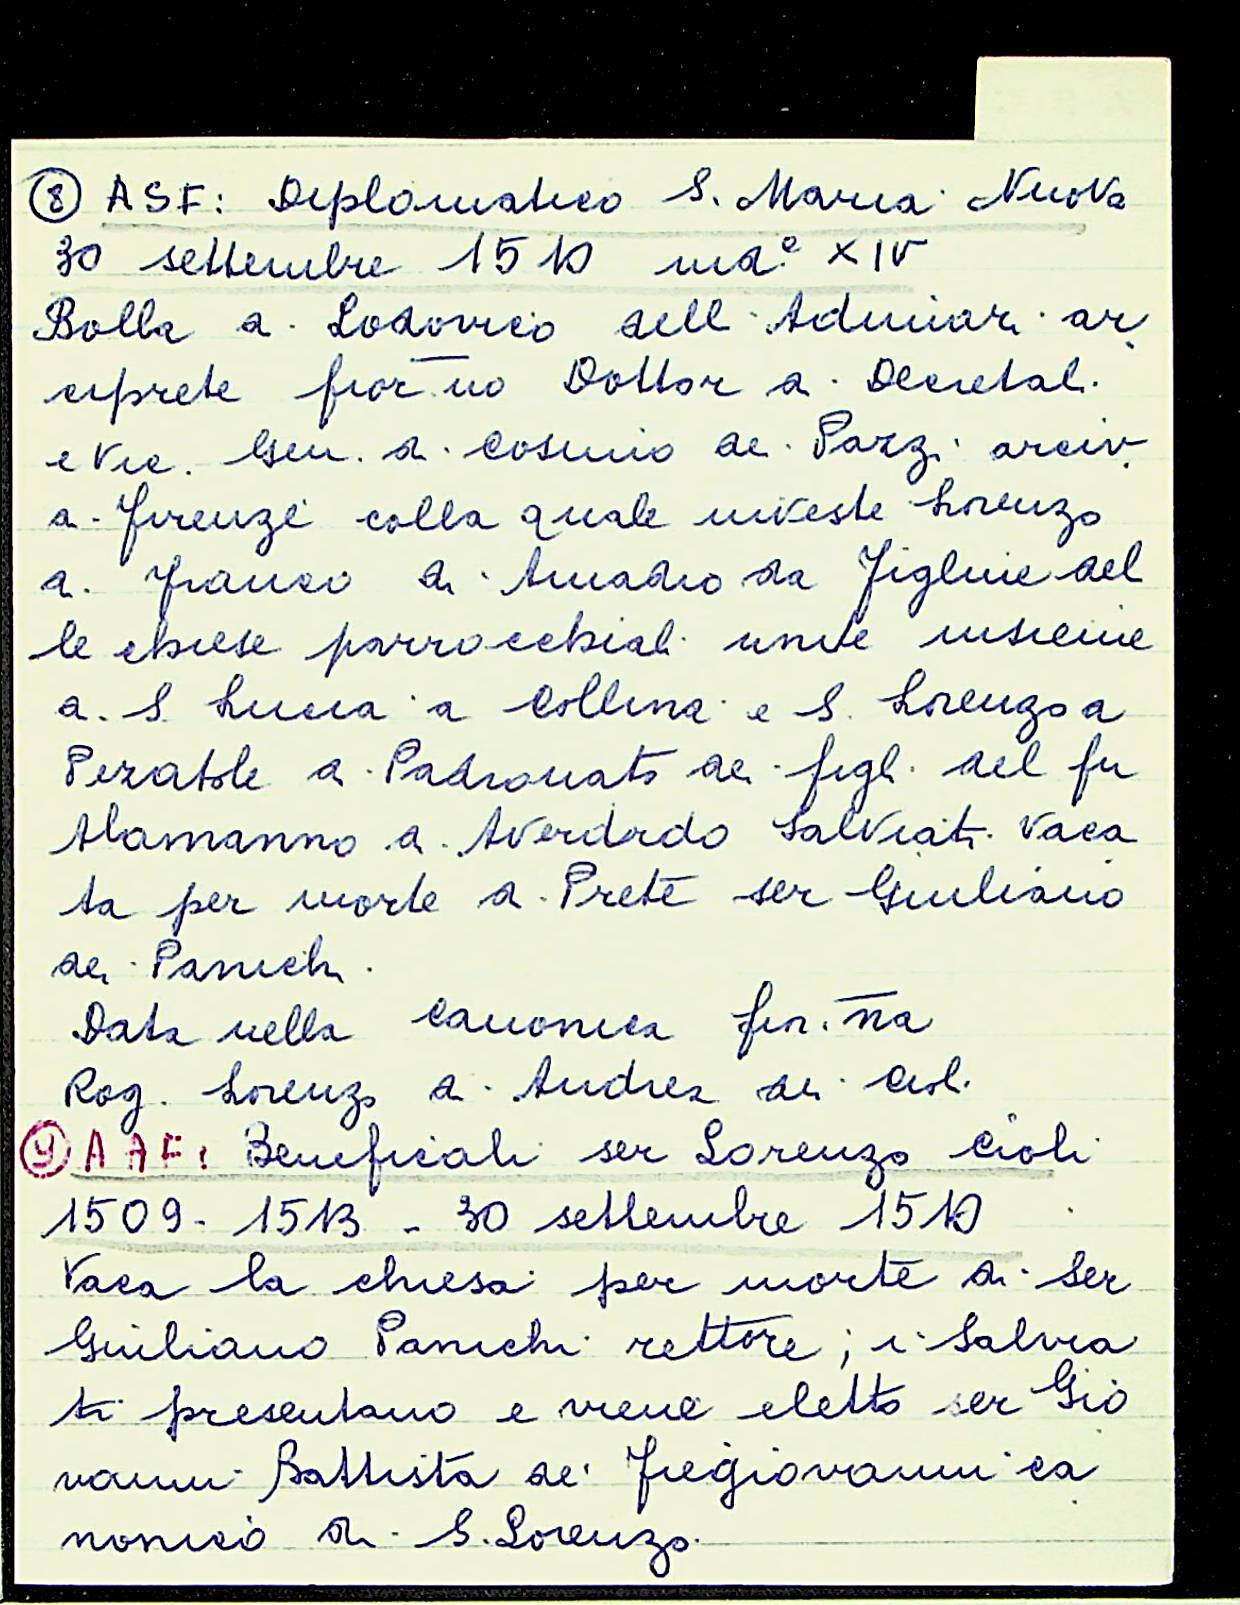 ⑧ ASF: Diplomatico S. Maria Nuova
30 settembre 1510 ind.e XIV
Bolla di Lodovico dell'Adimari ar
ciprete fior.no Dottor di Decretali
e Vic. Gen. di Cosimo dei Pazzi arciv.
di Firenze colla quale investe Lorenzo
di Franco di Amadio da Figline del
le chiese parrocchiali unite insieme
di S. Lucia a Collina e S. Lorenzo a
Pezatole di Padronato dei figli del fu
Alamanno di Averardo Salviati vaca
ta per morte di Prete ser Giuliano
dei Panichi.
Data nella canonica fir.na
Rog. Lorenzo di Andrea dei Cioli
⑨ AAF: Beneficiali ser Lorenzo Cioli
1509 - 1513 - 30 settembre 1510
Vaca la chiesa per morte di Ser
Giuliano Panichi rettore; i Salvia
ti presentano e viene eletto ser Gio
vanni Battista de' Fregiovanni ca
nonico di S. Lorenzo.